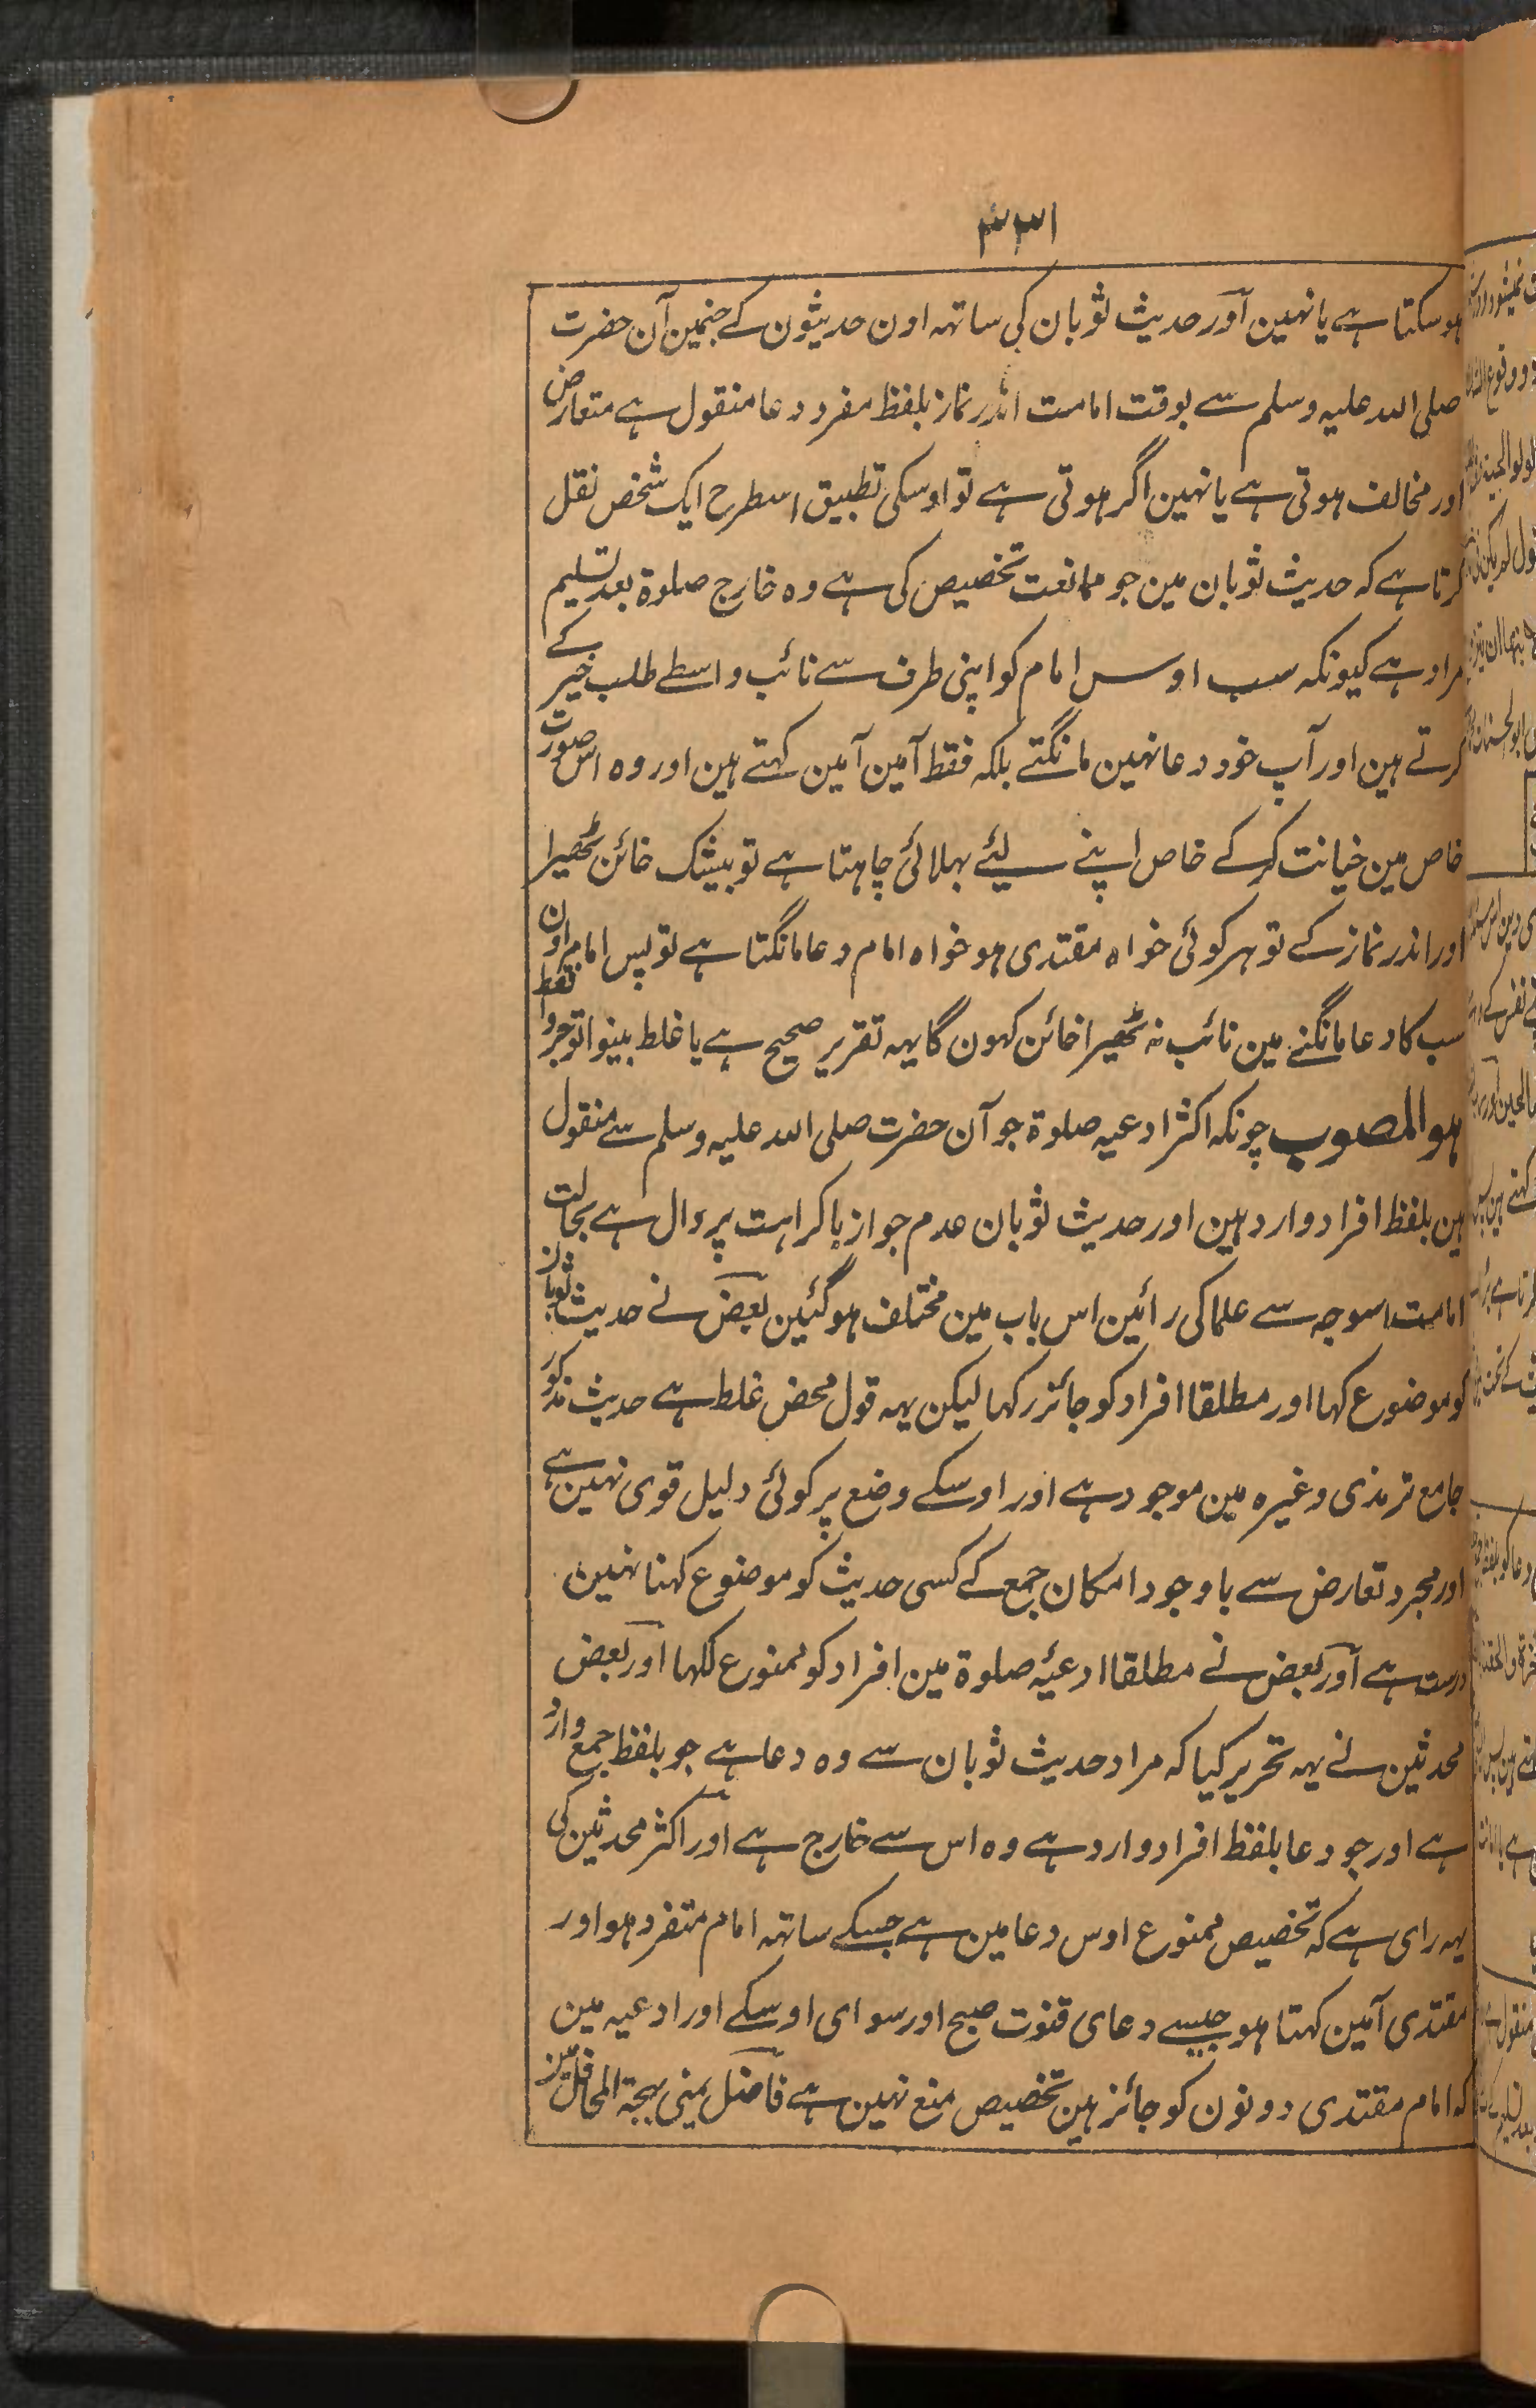 ۳۳۱
ہوسکتا ہے یا نہین آور حدیث ثوبان کی ساتہہ اون حدیثون کے جنمین آن حضرت
صلی اللہ علیہ وسلم سے بوقت امامت اندر نماز بلفظ مفرد دعا منقول ہے متعارض
اور مخالف ہوتی ہے یا نہین اگر ہوتی ہے تو اوسکی تطبیق اسطرح ایک شخص نقل
کرتا ہے کہ حدیث ثوبان مین جو ممانعت تخصیص کی ہے وہ خارج صلوۃ بعد تسلیم
مراد ہے کیونکہ سب اوس امام کو اپنی طرف سے نائب واسطے طلب خیر کے
کرتے ہین اور آپ خود دعا نہین مانگتے بلکہ فقط آمین آمین کہتے ہین اور وہ اس صورت
خاص مین خیانت کرکے خاص اپنے لیئے بہلائی چاہتا ہے تو بیشک خائن ٹھیرا
اور اندر نماز کے تو ہر کوئی خواہ مقتدی ہو خواہ امام دعا مانگتا ہے تو پس امام اون
سب کا دعا مانگنے مین نائب نہ ٹھیرا خائن کہون گا یہہ تقریر صحیح ہے یا غلط بینوا توجروا فقط
ہوالمصوب چونکہ اکثر ادعیہ صلوۃ جو آن حضرت صلی اللہ علیہ وسلم سے منقول
ہین بلفظ افراد وارد ہین اور حدیث ثوبان عدم جواز یا کراہت پر دال ہے بحالت
امامت اسوجہ سے علما کی رائین اس باب مین مختلف ہوگئین بعض نے حدیث ثوبان
کو موضوع کہا اور مطلقا افراد کو جائز رکہا لیکن یہہ قول محض غلط ہے حدیث مذکور
جامع ترمذی وغیرہ مین موجود ہے اور اوسکے وضع پر کوئی دلیل قوی نہین ہے
اور مجرد تعارض سے باوجود امکان جمع کے کسی حدیث کو موضوع کہنا نہین
درست ہے آور بعض نے مطلقا ادعیۂ صلوۃ مین افراد کو ممنوع لکہا اور بعض
محدثین نے یہہ تحریر کیا کہ مراد حدیث ثوبان سے وہ دعا ہے جو بلفظ جمع وارد
ہے اور جو دعا بلفظ افراد وارد ہے وہ اس سے خارج ہے اور اکثر محدثین کی
یہہ رای ہے کہ تخصیص ممنوع اوس دعا مین ہے جسکے ساتہہ امام متفرد ہو اور
مقتدی آمین کہتا ہو جیسے دعای قنوت صبح اور سوای اوسکے اور ادعیہ مین
کہ امام مقتدی دونون کو جائز ہین تخصیص منع نہین ہے فاضل یمنی بہجۃ المحافل مین